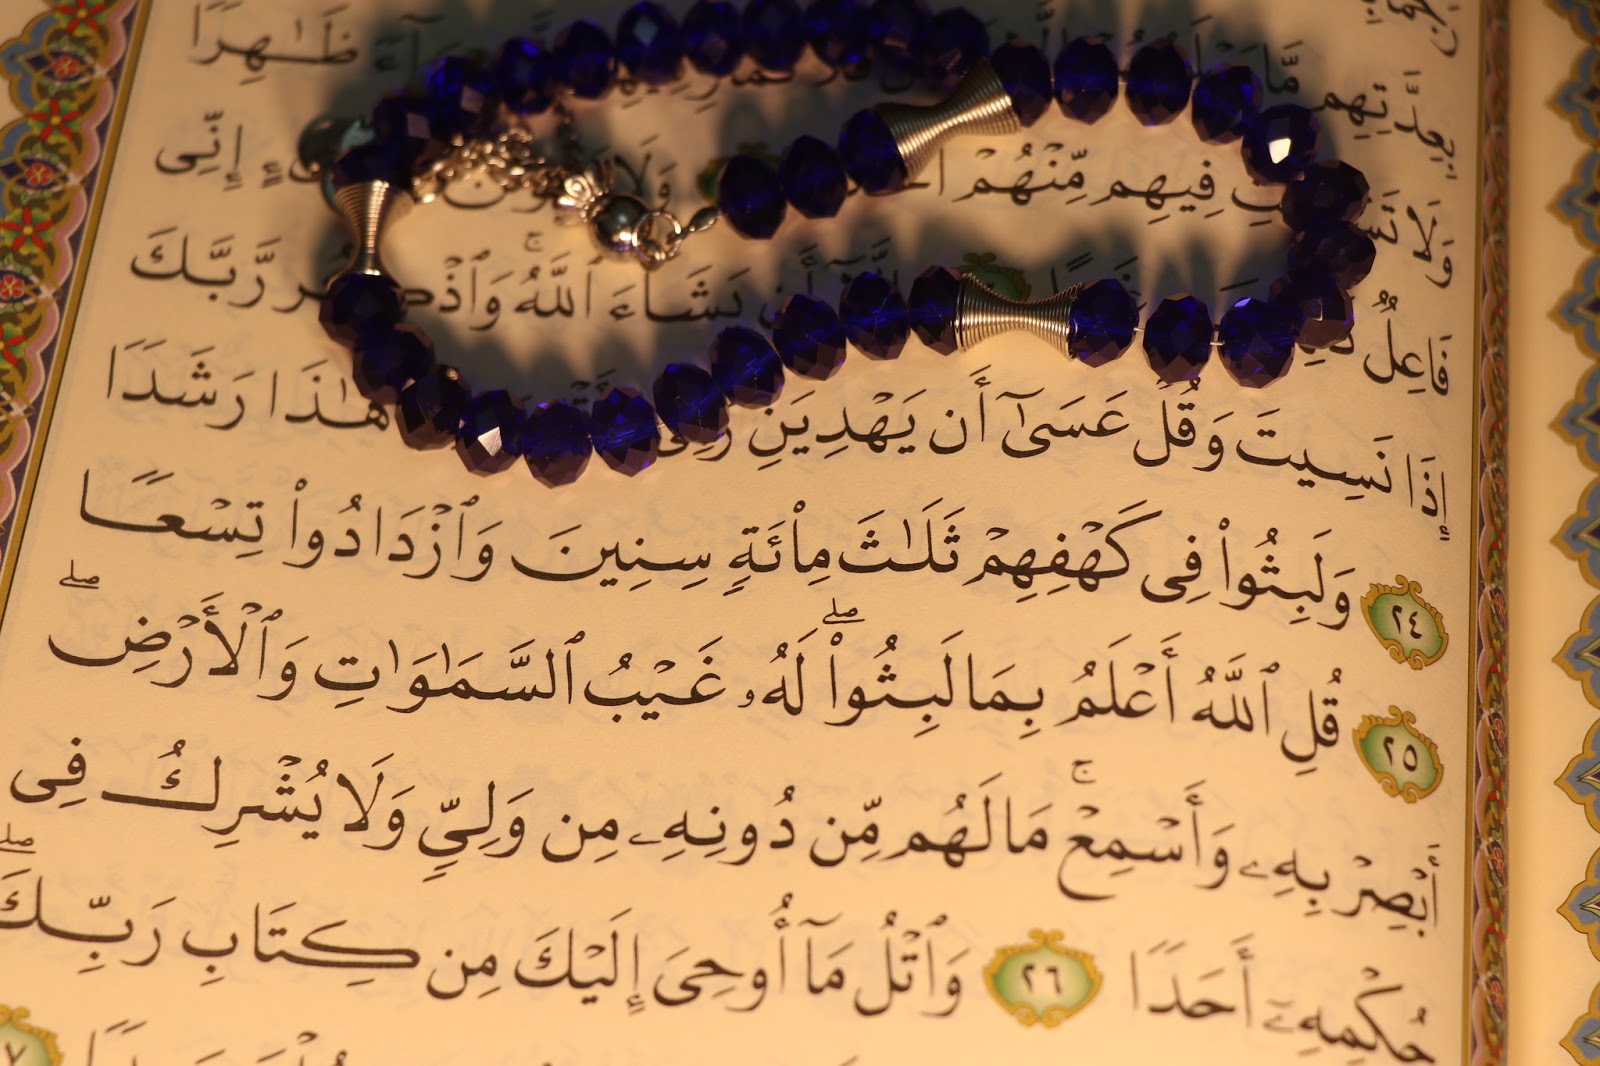 بِعِدَّتِهِم مَّا ظَٰهِرًا
وَلَا فِيهِم مِّنْهُمْ إِنِّى
فَاعِلٌ أَن يَشَآءَ ٱللَّهُ ۚ وَٱذْكُر رَّبَّكَ
إِذَا نَسِيتَ وَقُلْ عَسَىٰٓ أَن يَهْدِيَنِ رَبِّى هَٰذَا رَشَدًا
٢٤ وَلَبِثُوا۟ فِى كَهْفِهِمْ ثَلَٰثَ مِا۟ئَةٍ سِنِينَ وَٱزْدَادُوا۟ تِسْعًا
٢٥ قُلِ ٱللَّهُ أَعْلَمُ بِمَا لَبِثُوا۟ ۖ لَهُۥ غَيْبُ ٱلسَّمَٰوَٰتِ وَٱلْأَرْضِ ۖ
أَبْصِرْ بِهِۦ وَأَسْمِعْ ۚ مَا لَهُم مِّن دُونِهِۦ مِن وَلِىٍّ وَلَا يُشْرِكُ فِى
حُكْمِهِۦٓ أَحَدًا ٢٦ وَٱتْلُ مَآ أُوحِىَ إِلَيْكَ مِن كِتَابِ رَبِّكَ ۖ